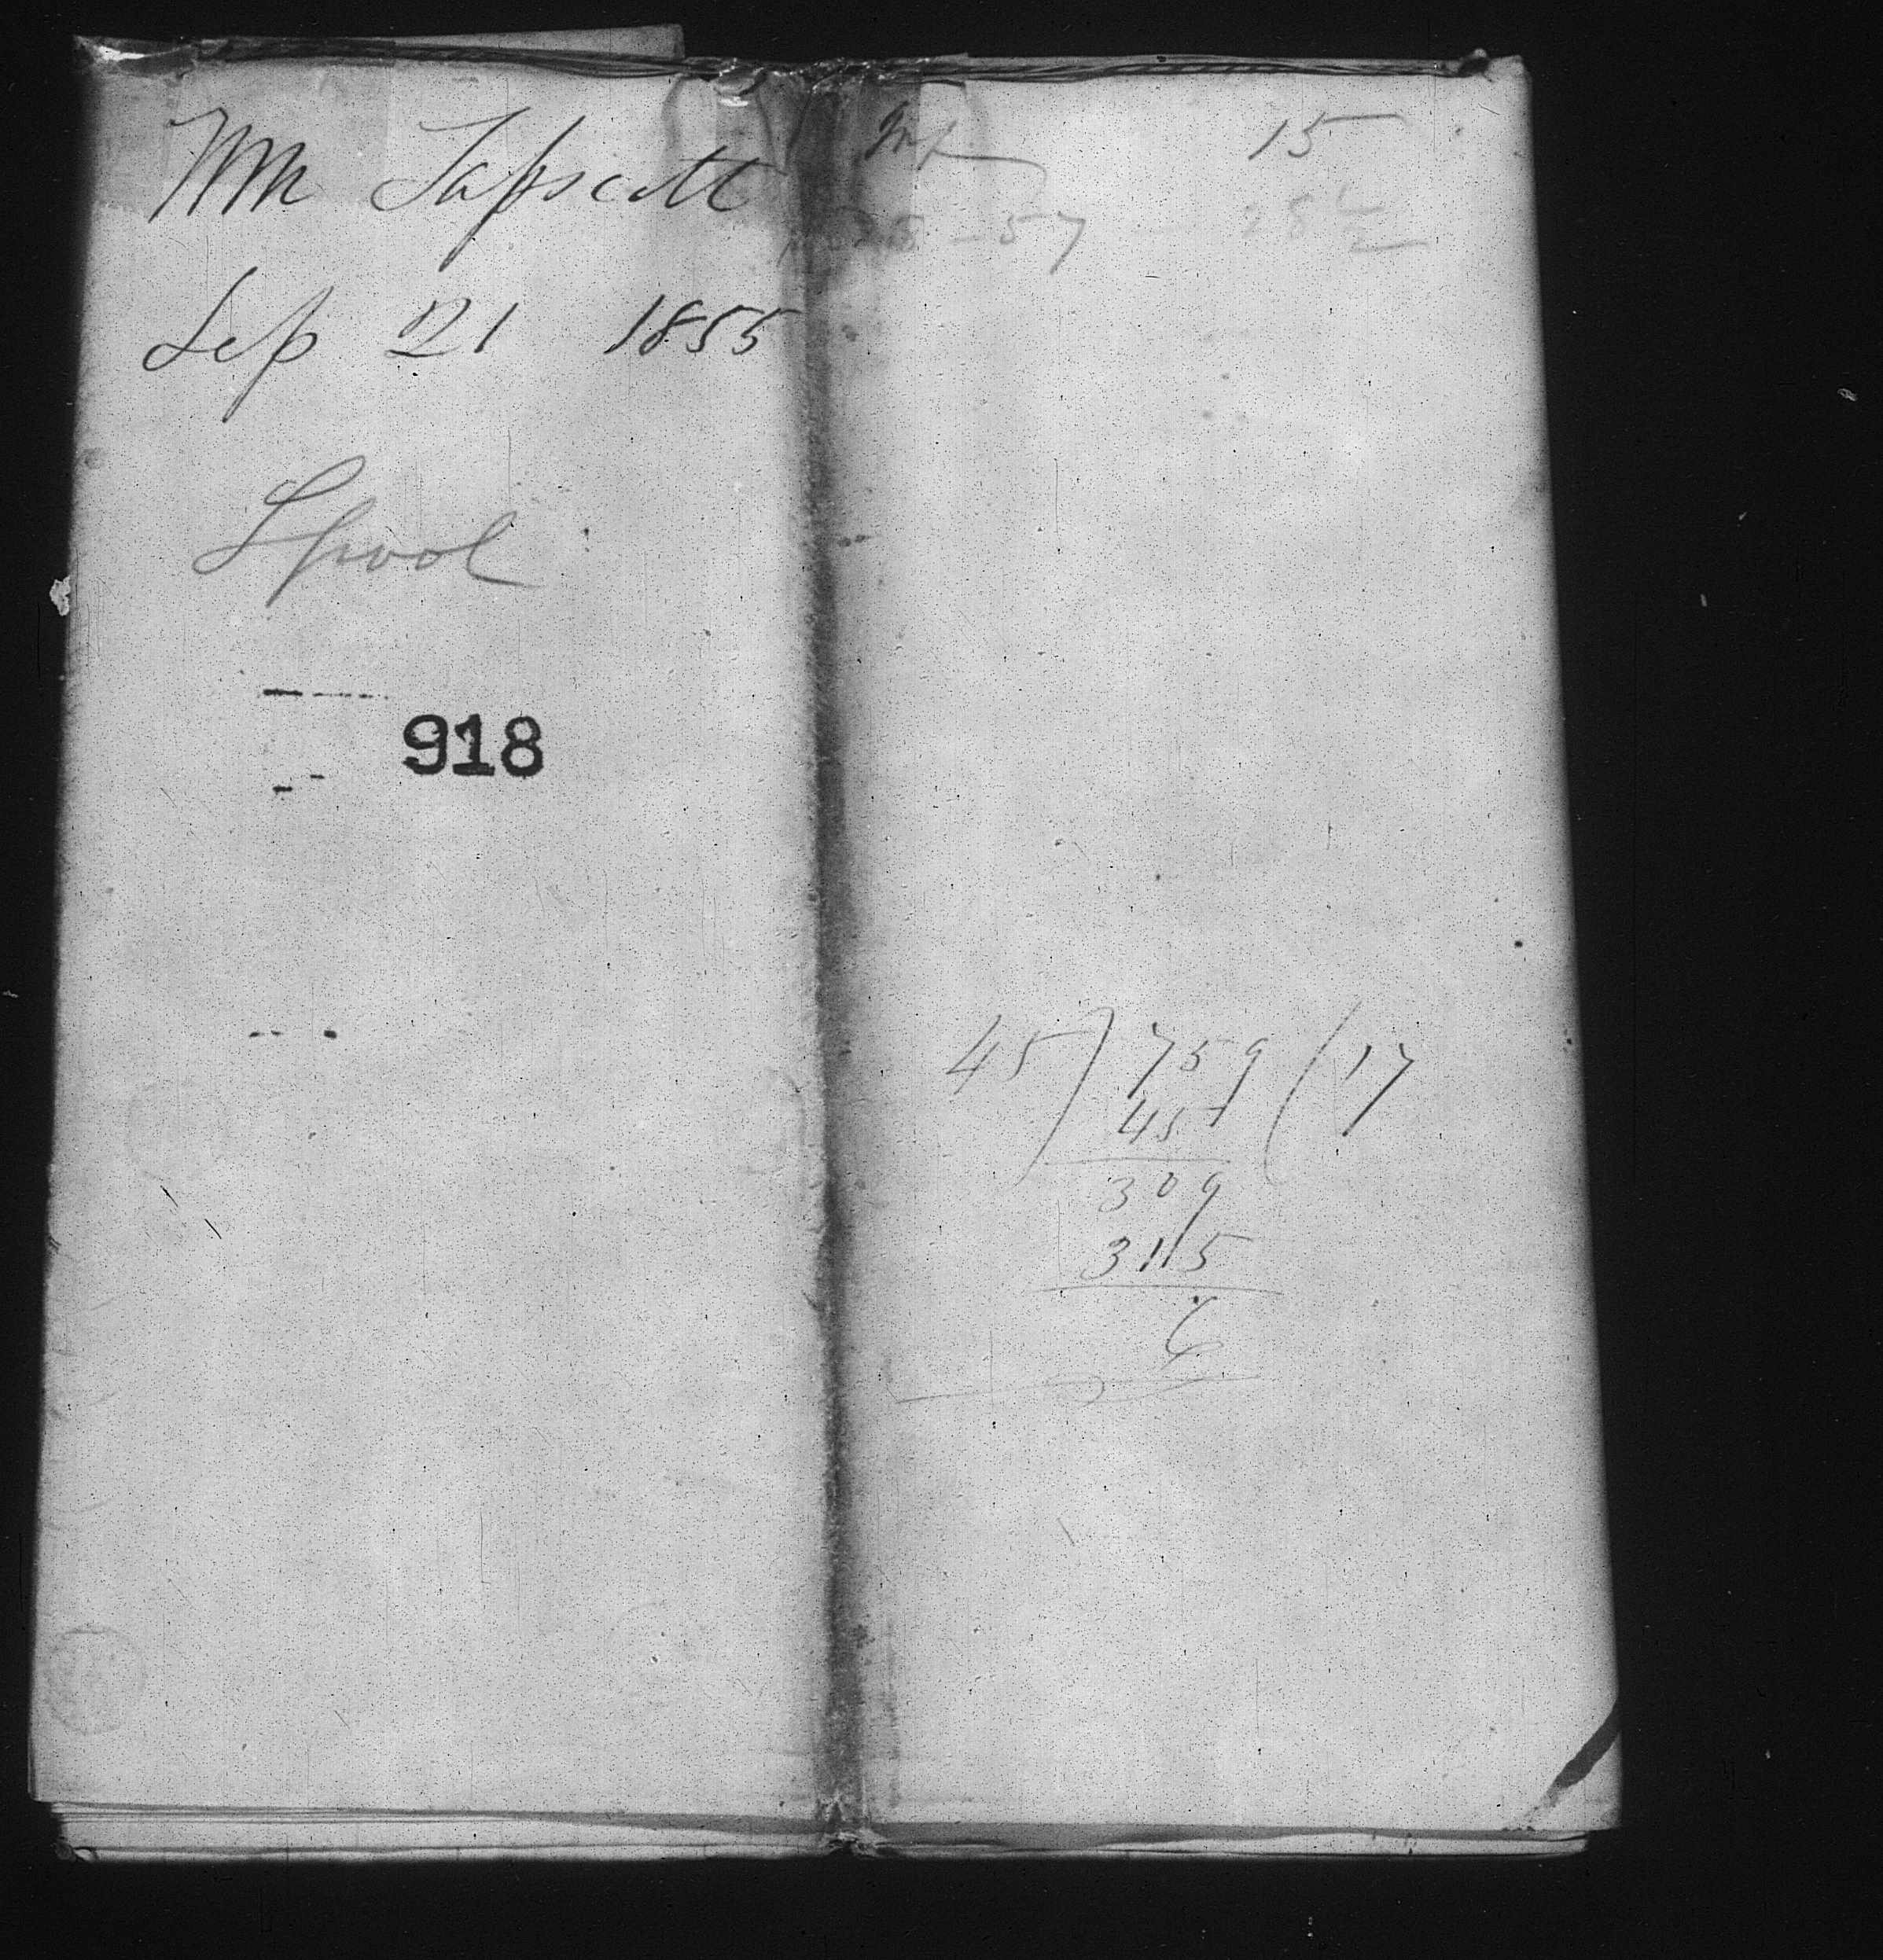 Wm Tapscott
Sep 21 1855
Lpool
918
15
- 57
28 1/2
45 ) 759 ( 17
45
309
315
6